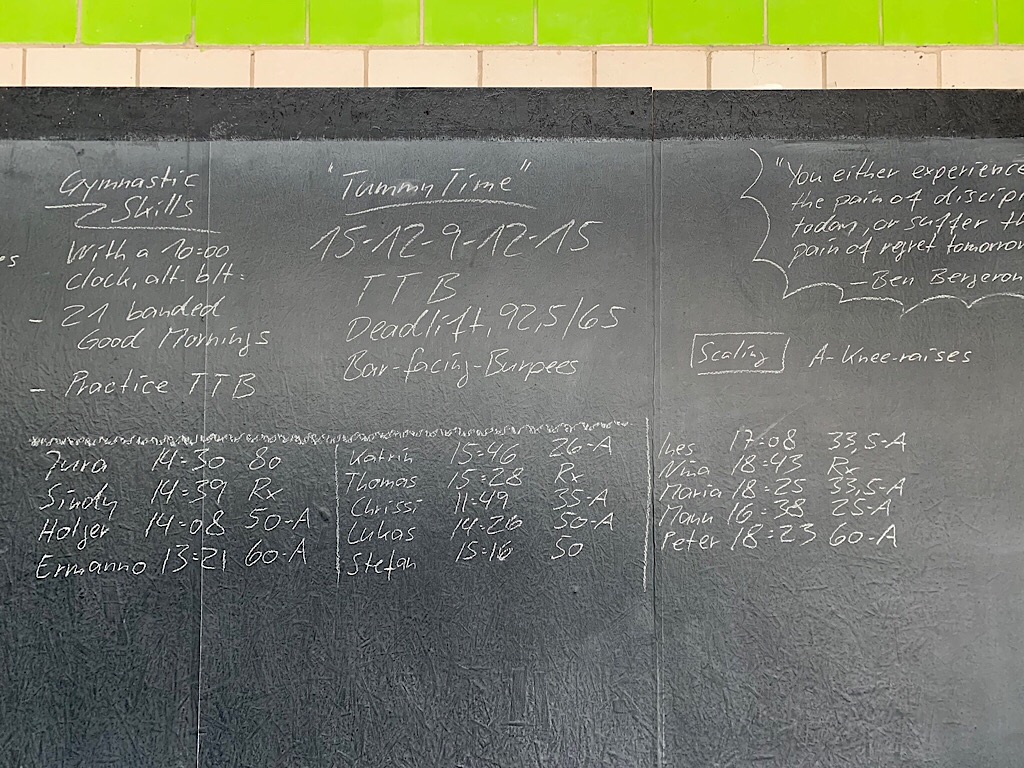 Gymnastic
Skills
With a 10:00
clock, alt. btt:
- 21 banded
Good Mornings
- Practice TTB
"Tummy Time"
15-12-9-12-15
TTB
Deadlift, 92,5/65
Bar-facing-Burpees
"You either experience
the pain of discipl
today, or suffer th
pain of regret tomorrow
- Ben Bergeron
Scaling A-Knee-raises
Jura 14:30 80
Sindy 14:39 Rx
Holger 14:08 50-A
Ermanno 13:21 60-A
Katrin 15:46 26-A
Thomas 15:28 Rx
Chrissi 11:49 35-A
Lukas 14:26 50-A
Stefan 15:16 50
Ines 17:08 33,5-A
Nina 18:43 Rx
Maria 18:25 33,5-A
Manu 16:38 25-A
Peter 18:23 60-A